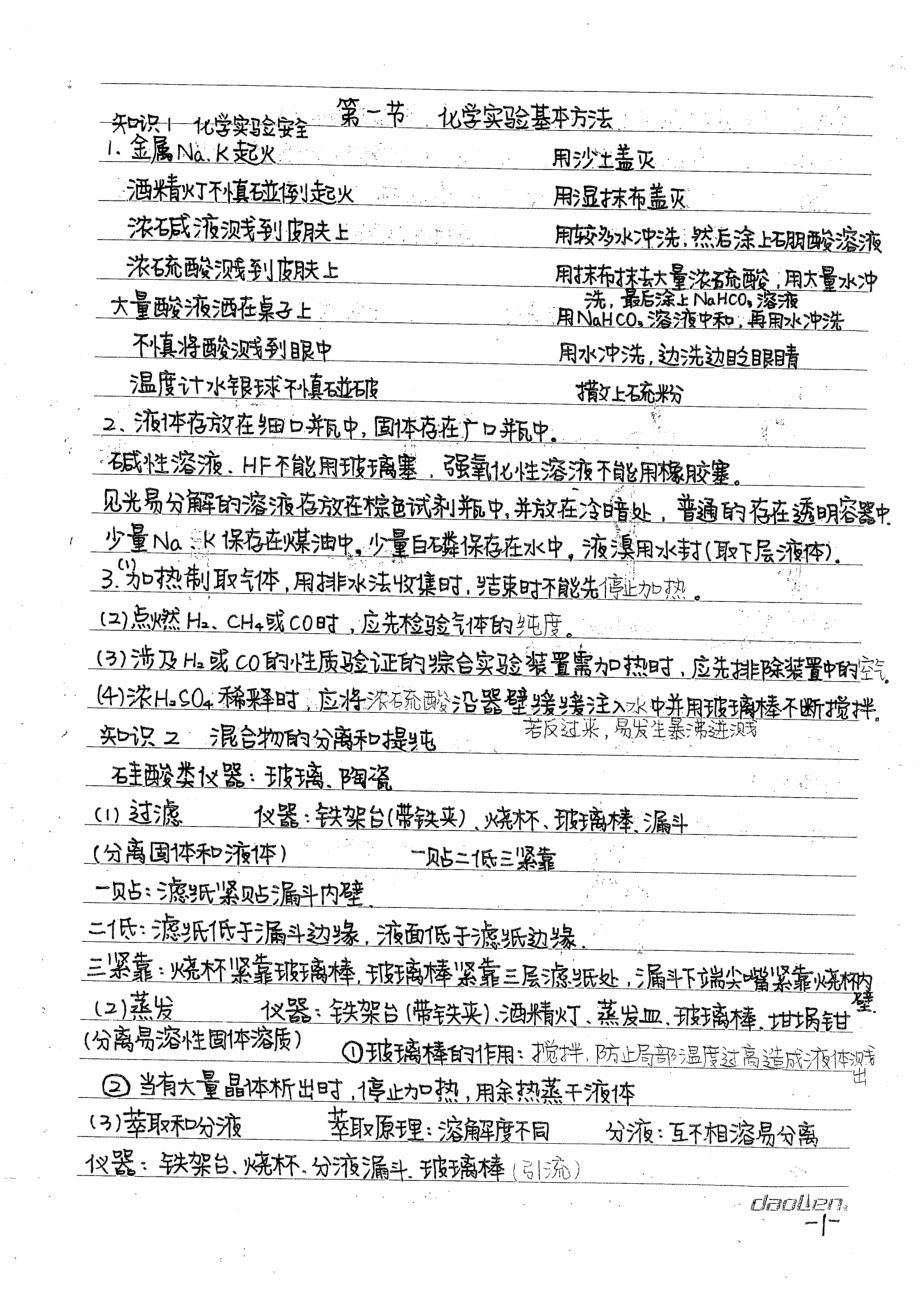 第一节 化学实验基本方法
知识1 化学实验安全
1. 金属Na、K起火 用沙土盖灭
酒精灯不慎碰倒起火 用湿抹布盖灭
浓碱液溅到皮肤上 用较多水冲洗,然后涂上硼酸溶液
浓硫酸溅到皮肤上 用抹布抹去大量浓硫酸,用大量水冲
洗,最后涂上NaHCO₃溶液
大量酸液洒在桌子上 用NaHCO₃溶液中和,再用水冲洗
不慎将酸溅到眼中 用水冲洗,边洗边眨眼睛
温度计水银球不慎碰破 撒上硫粉
2、液体存放在细口瓶中,固体存在广口瓶中。
碱性溶液、HF不能用玻璃塞,强氧化性溶液不能用橡胶塞。
见光易分解的溶液存放在棕色试剂瓶中,并放在冷暗处,普通的存在透明容器中.
少量Na、K保存在煤油中。少量白磷保存在水中。液溴用水封(取下层液体).
3.(1)加热制取气体,用排水法收集时,结束时不能先停止加热。
(2)点燃H₂、CH₄或CO时,应先检验气体的纯度。
(3)涉及H₂或CO的性质验证的综合实验装置需加热时,应先排除装置中的空气。
(4)浓H₂SO₄稀释时,应将浓硫酸沿器壁缓缓注入水中并用玻璃棒不断搅拌。
若反过来,易发生暴沸迸溅
知识2 混合物的分离和提纯
硅酸类仪器:玻璃、陶瓷
(1)过滤 仪器:铁架台(带铁夹)、烧杯、玻璃棒、漏斗
(分离固体和液体) 一贴二低三紧靠
一贴:滤纸紧贴漏斗内壁.
二低:滤纸低于漏斗边缘,液面低于滤纸边缘.
三紧靠:烧杯紧靠玻璃棒,玻璃棒紧靠三层滤纸处,漏斗下端尖嘴紧靠烧杯内
壁.
(2)蒸发 仪器:铁架台(带铁夹)、酒精灯、蒸发皿、玻璃棒、坩埚钳
(分离易溶性固体溶质) ①玻璃棒的作用:搅拌,防止局部温度过高造成液体溅
出
②当有大量晶体析出时,停止加热,用余热蒸干液体
(3)萃取和分液 萃取原理:溶解度不同 分液:互不相溶易分离
仪器:铁架台、烧杯、分液漏斗、玻璃棒(引流)
daolien
-1-